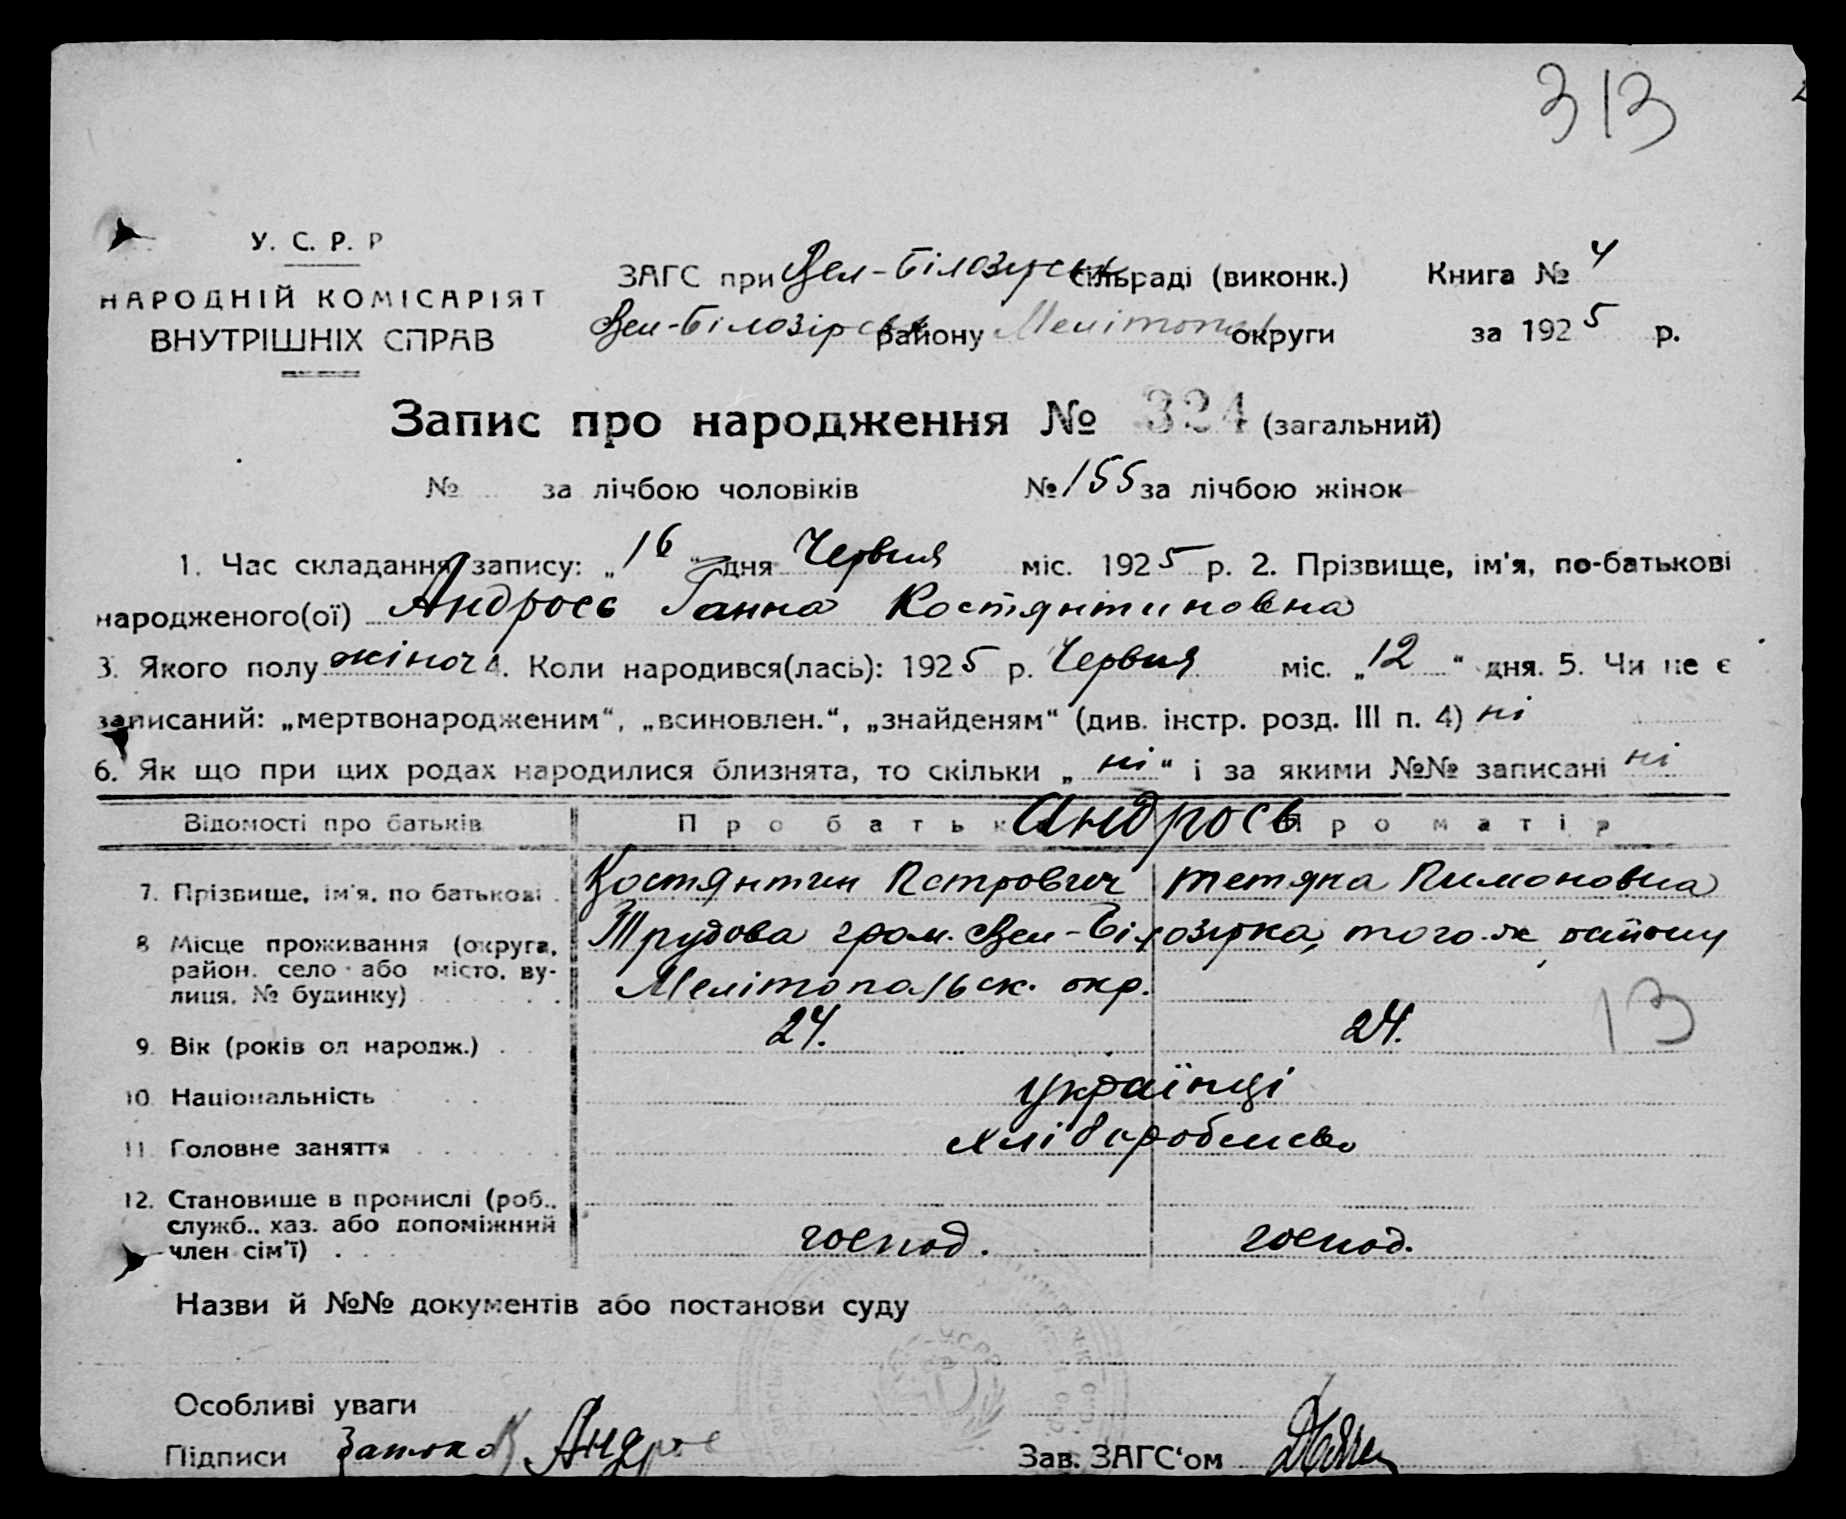 313
У. С. Р. Р
НАРОДНІЙ КОМІСАРІЯТ
ВНУТРІШНІХ СПРАВ
ЗАГС при Вел-Білозирськ сільраді (виконк.) Книга № 4
Вел-Білозірськ району Мелітопол округи за 1925 р.
Запис про народження № 324 (загальний)
№ за лічбою чоловіків № 155 за лічбою жінок
1. Час складання запису: „16" дня Червня міс. 1925 р. 2. Прізвище, ім'я, по-батькові
народженого(ої) Андросв Ганна Костянтиновна
3. Якого полу жіноч 4. Коли народився(лась): 1925 р. Червня міс. „12" дня. 5. Чи не є
записаний: „мертвонародженим", „всиновлен.", „знайденям" (див. інстр. розд. III п. 4) ні
6. Як що при цих родах народилися близнята, то скільки „ні" і за якими №№ записані ні
Відомості про батьків Про батьк Андросв Про матір
7. Прізвище, ім'я, по батькові Костянтин Петрович Тетяна Пимоновна
8 Місце проживання (округа, район, село або місто, ву-лиця, № будинку) Трудова гром. Вел-Білозирка, того-ж району
Мелітопальск. окр.
13
9. Вік (років од народж.) 24. 24.
10 Національність українці
11 Головне заняття хліборобство
12. Становище в промислі (роб.. служб.. хаз. або допоміжний член сім'ї) господ. господ.
Назви й №№ документів або постанови суду
Особливі уваги
Підписи Андрос Зав. ЗАГС'ом